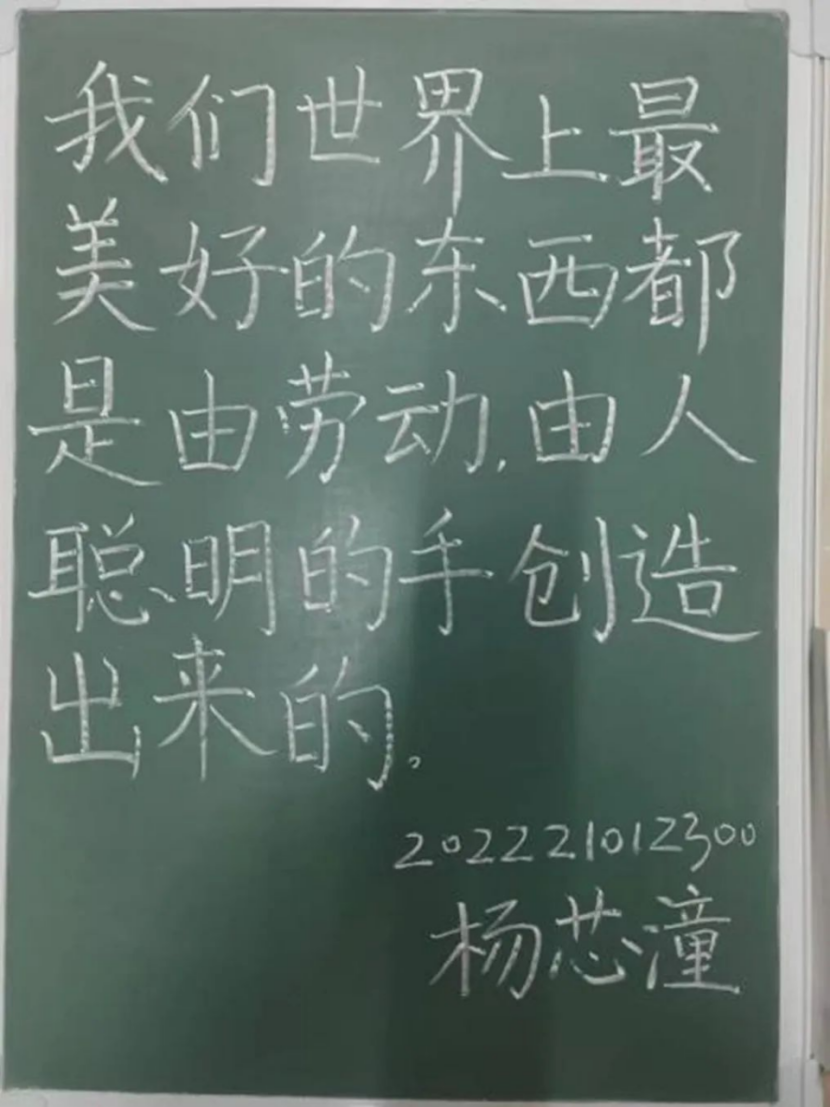 我们世界上最
美好的东西都
是由劳动,由人
聪明的手创造
出来的。
202221012300
杨芯潼